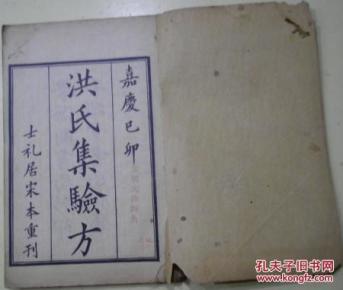 嘉慶己卯
洪氏集驗方
士礼居宋本重刊
孔夫子旧书网